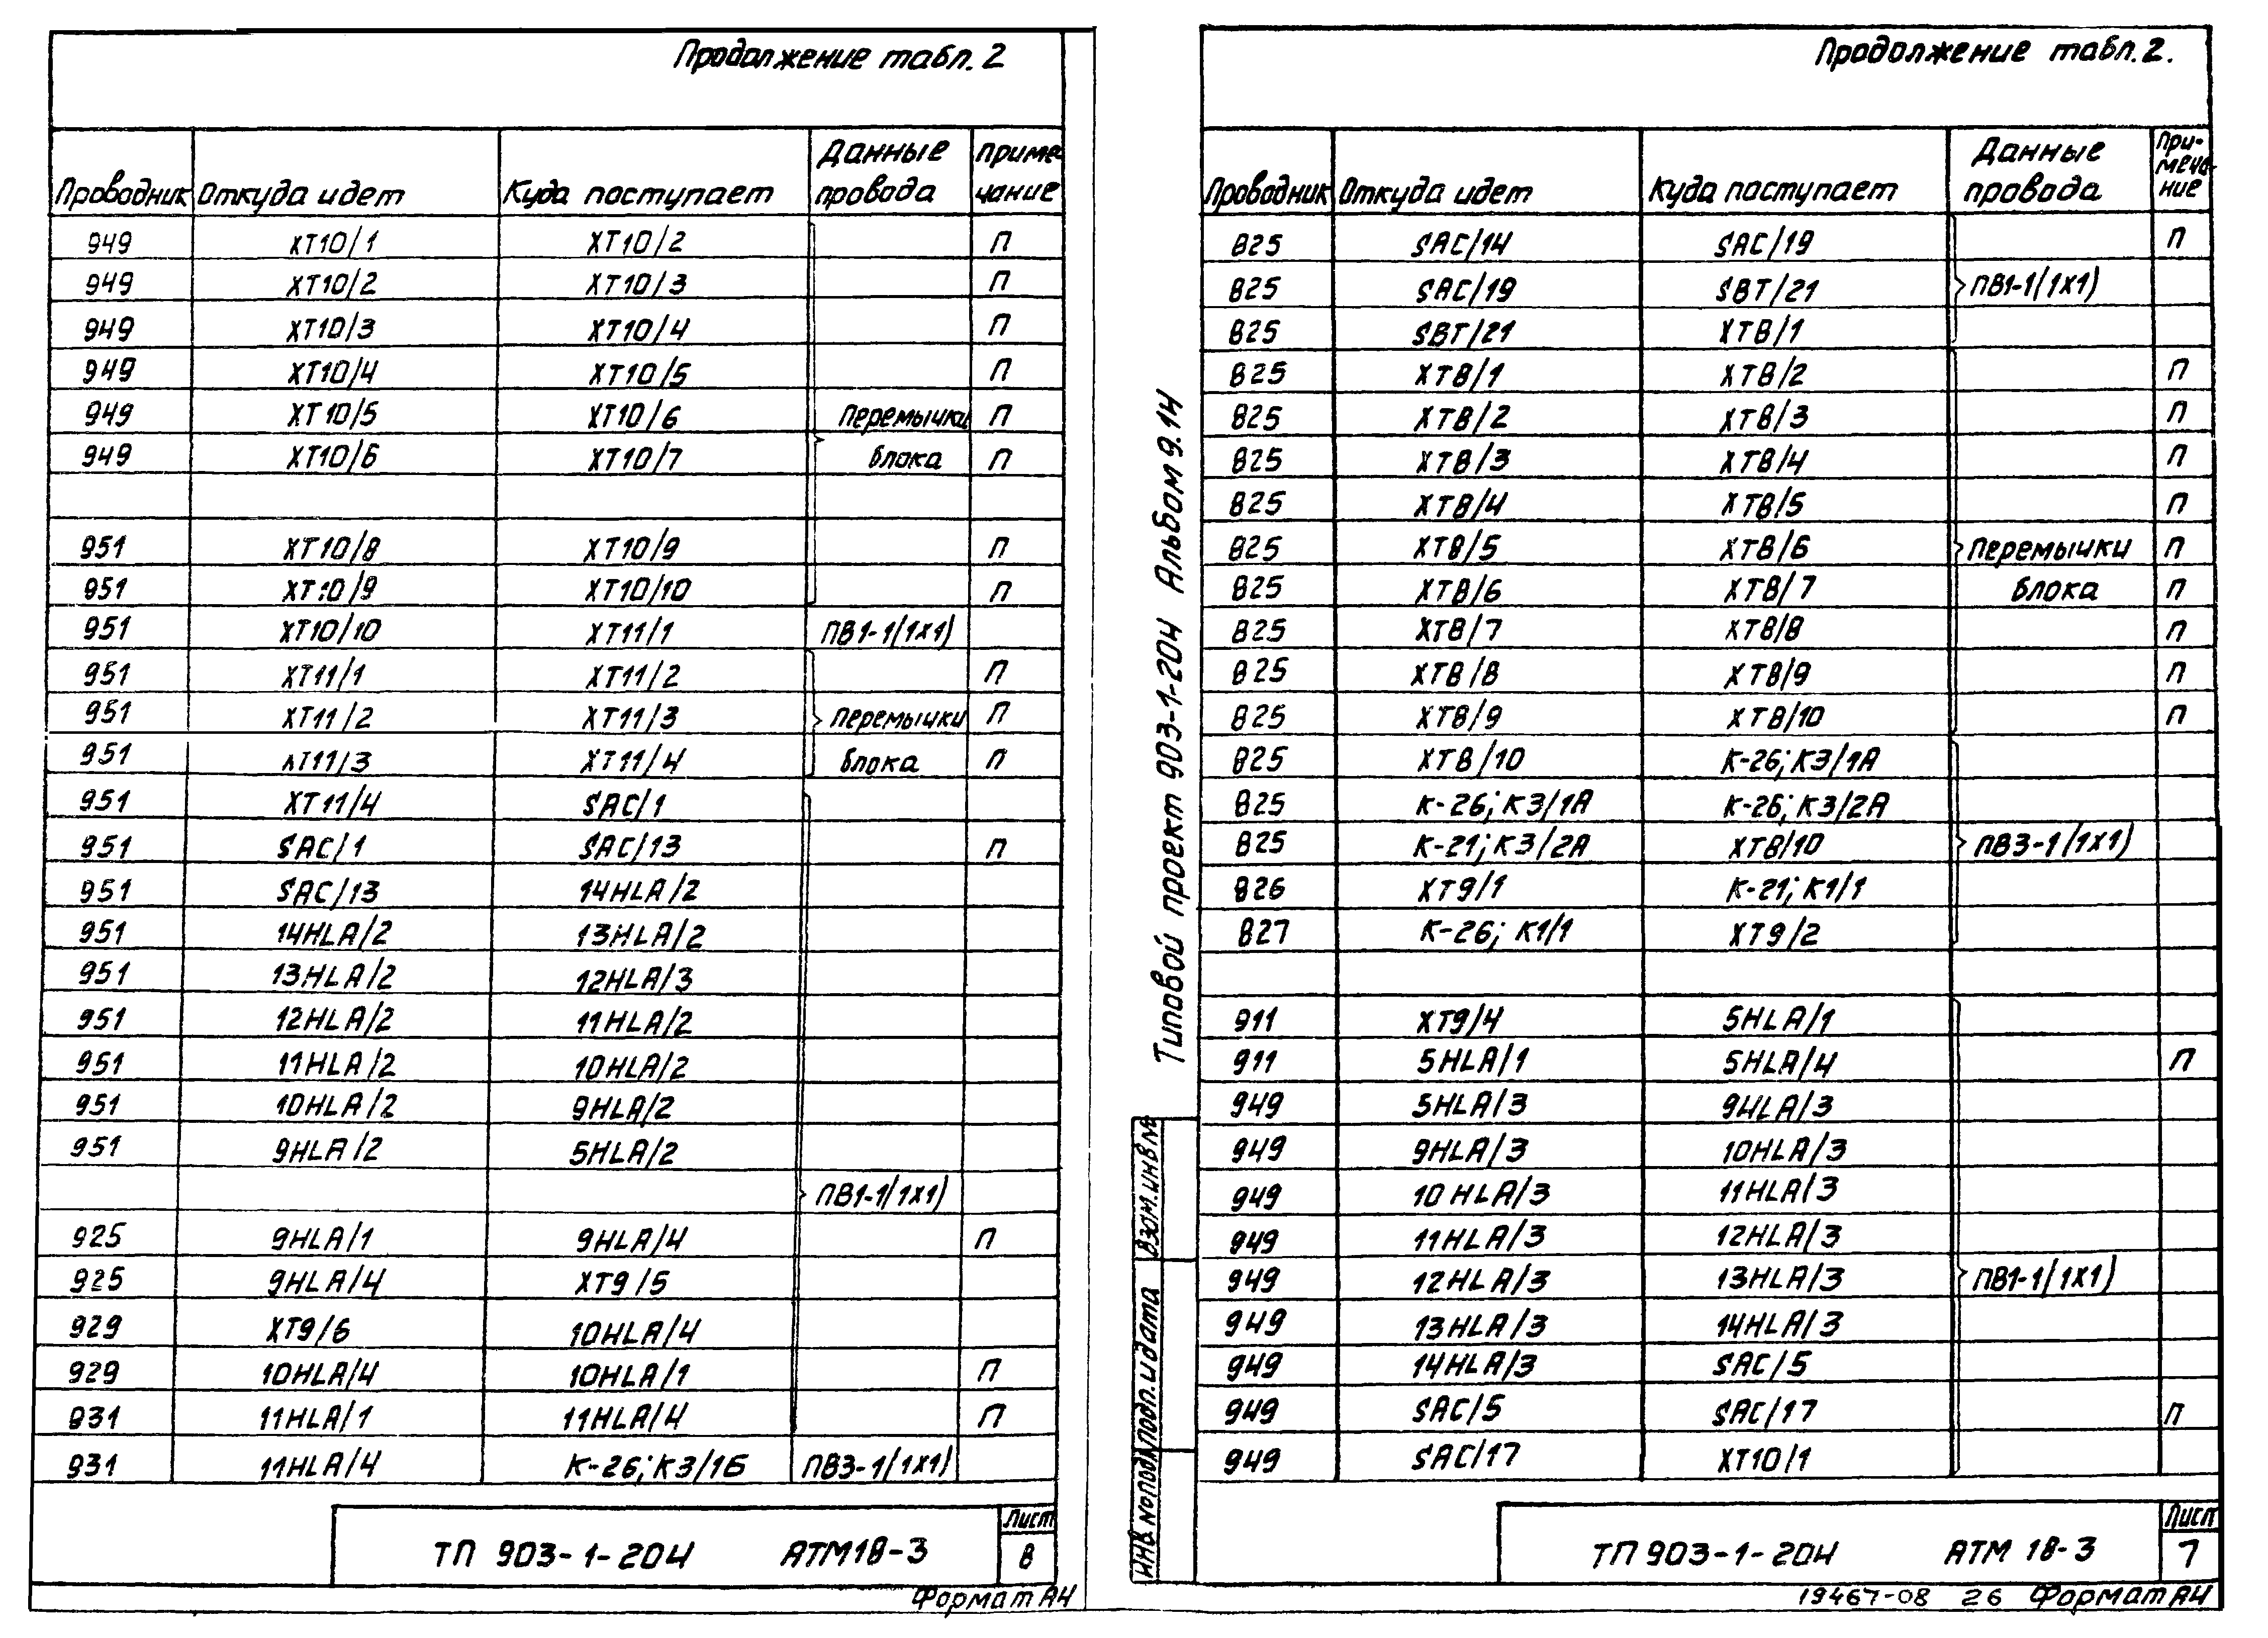 Продолжение табл. 2
Проводник Откуда идет Куда поступает Данные провода Примечание
949 XT10/1 XT10/2 П
949 XT10/2 XT10/3 П
949 XT10/3 XT10/4 П
949 XT10/4 XT10/5 П
949 XT10/5 XT10/6 Перемычки П
949 XT10/6 XT10/7 блока П
951 XT10/8 XT10/9 П
951 XT10/9 XT10/10 П
951 XT10/10 XT11/1 ПВ1-1(1х1)
951 XT11/1 XT11/2 П
951 XT11/2 XT11/3 Перемычки П
951 XT11/3 XT11/4 блока П
951 XT11/4 SAC/1
951 SAC/1 SAC/13 П
951 SAC/13 14HLA/2
951 14HLA/2 13HLA/2
951 13HLA/2 12HLA/3
951 12HLA/2 11HLA/2
951 11HLA/2 10HLA/2
951 10HLA/2 9HLA/2
951 9HLA/2 5HLA/2
ПВ1-1(1х1)
925 9HLA/1 9HLA/4 П
925 9HLA/4 XT9/5
929 XT9/6 10HLA/4
929 10HLA/4 10HLA/1 П
931 11HLA/1 11HLA/4 П
931 11HLA/4 К-26; К3/1Б ПВ3-1(1х1)
ТП 903-1-204 АТМ18-3 Лист 8
Формат А4
Продолжение табл. 2.
Проводник Откуда идет Куда поступает Данные провода Примечание
825 SAC/14 SAC/19 П
825 SAC/19 SBT/21 ПВ1-1(1х1)
825 SBT/21 XT8/1
825 XT8/1 XT8/2 П
825 XT8/2 XT8/3 П
825 XT8/3 XT8/4 П
825 XT8/4 XT8/5 П
825 XT8/5 XT8/6 Перемычки П
825 XT8/6 XT8/7 блока П
825 XT8/7 XT8/8 П
825 XT8/8 XT8/9 П
825 XT8/9 XT8/10 П
825 XT8/10 К-26; К3/1А
825 К-26; К3/1А К-26; К3/2А
825 К-21; К3/2А XT8/10 ПВ3-1(1х1)
826 XT9/1 К-21; К1/1
827 К-26; К1/1 XT9/2
911 XT9/4 5HLA/1
911 5HLA/1 5HLA/4 П
949 5HLA/3 9HLA/3
949 9HLA/3 10HLA/3
949 10HLA/3 11HLA/3
949 11HLA/3 12HLA/3
949 12HLA/3 13HLA/3 ПВ1-1(1х1)
949 13HLA/3 14HLA/3
949 14HLA/3 SAC/5
949 SAC/5 SAC/17 П
949 SAC/17 XT10/1
Типовой проект 903-1-204 Альбом 9.14
Взам. инв №
Подп. и дата
Инв. № подл.
ТП 903-1-204 АТМ 18-3 Лист 7
19467-08 26 Формат А4